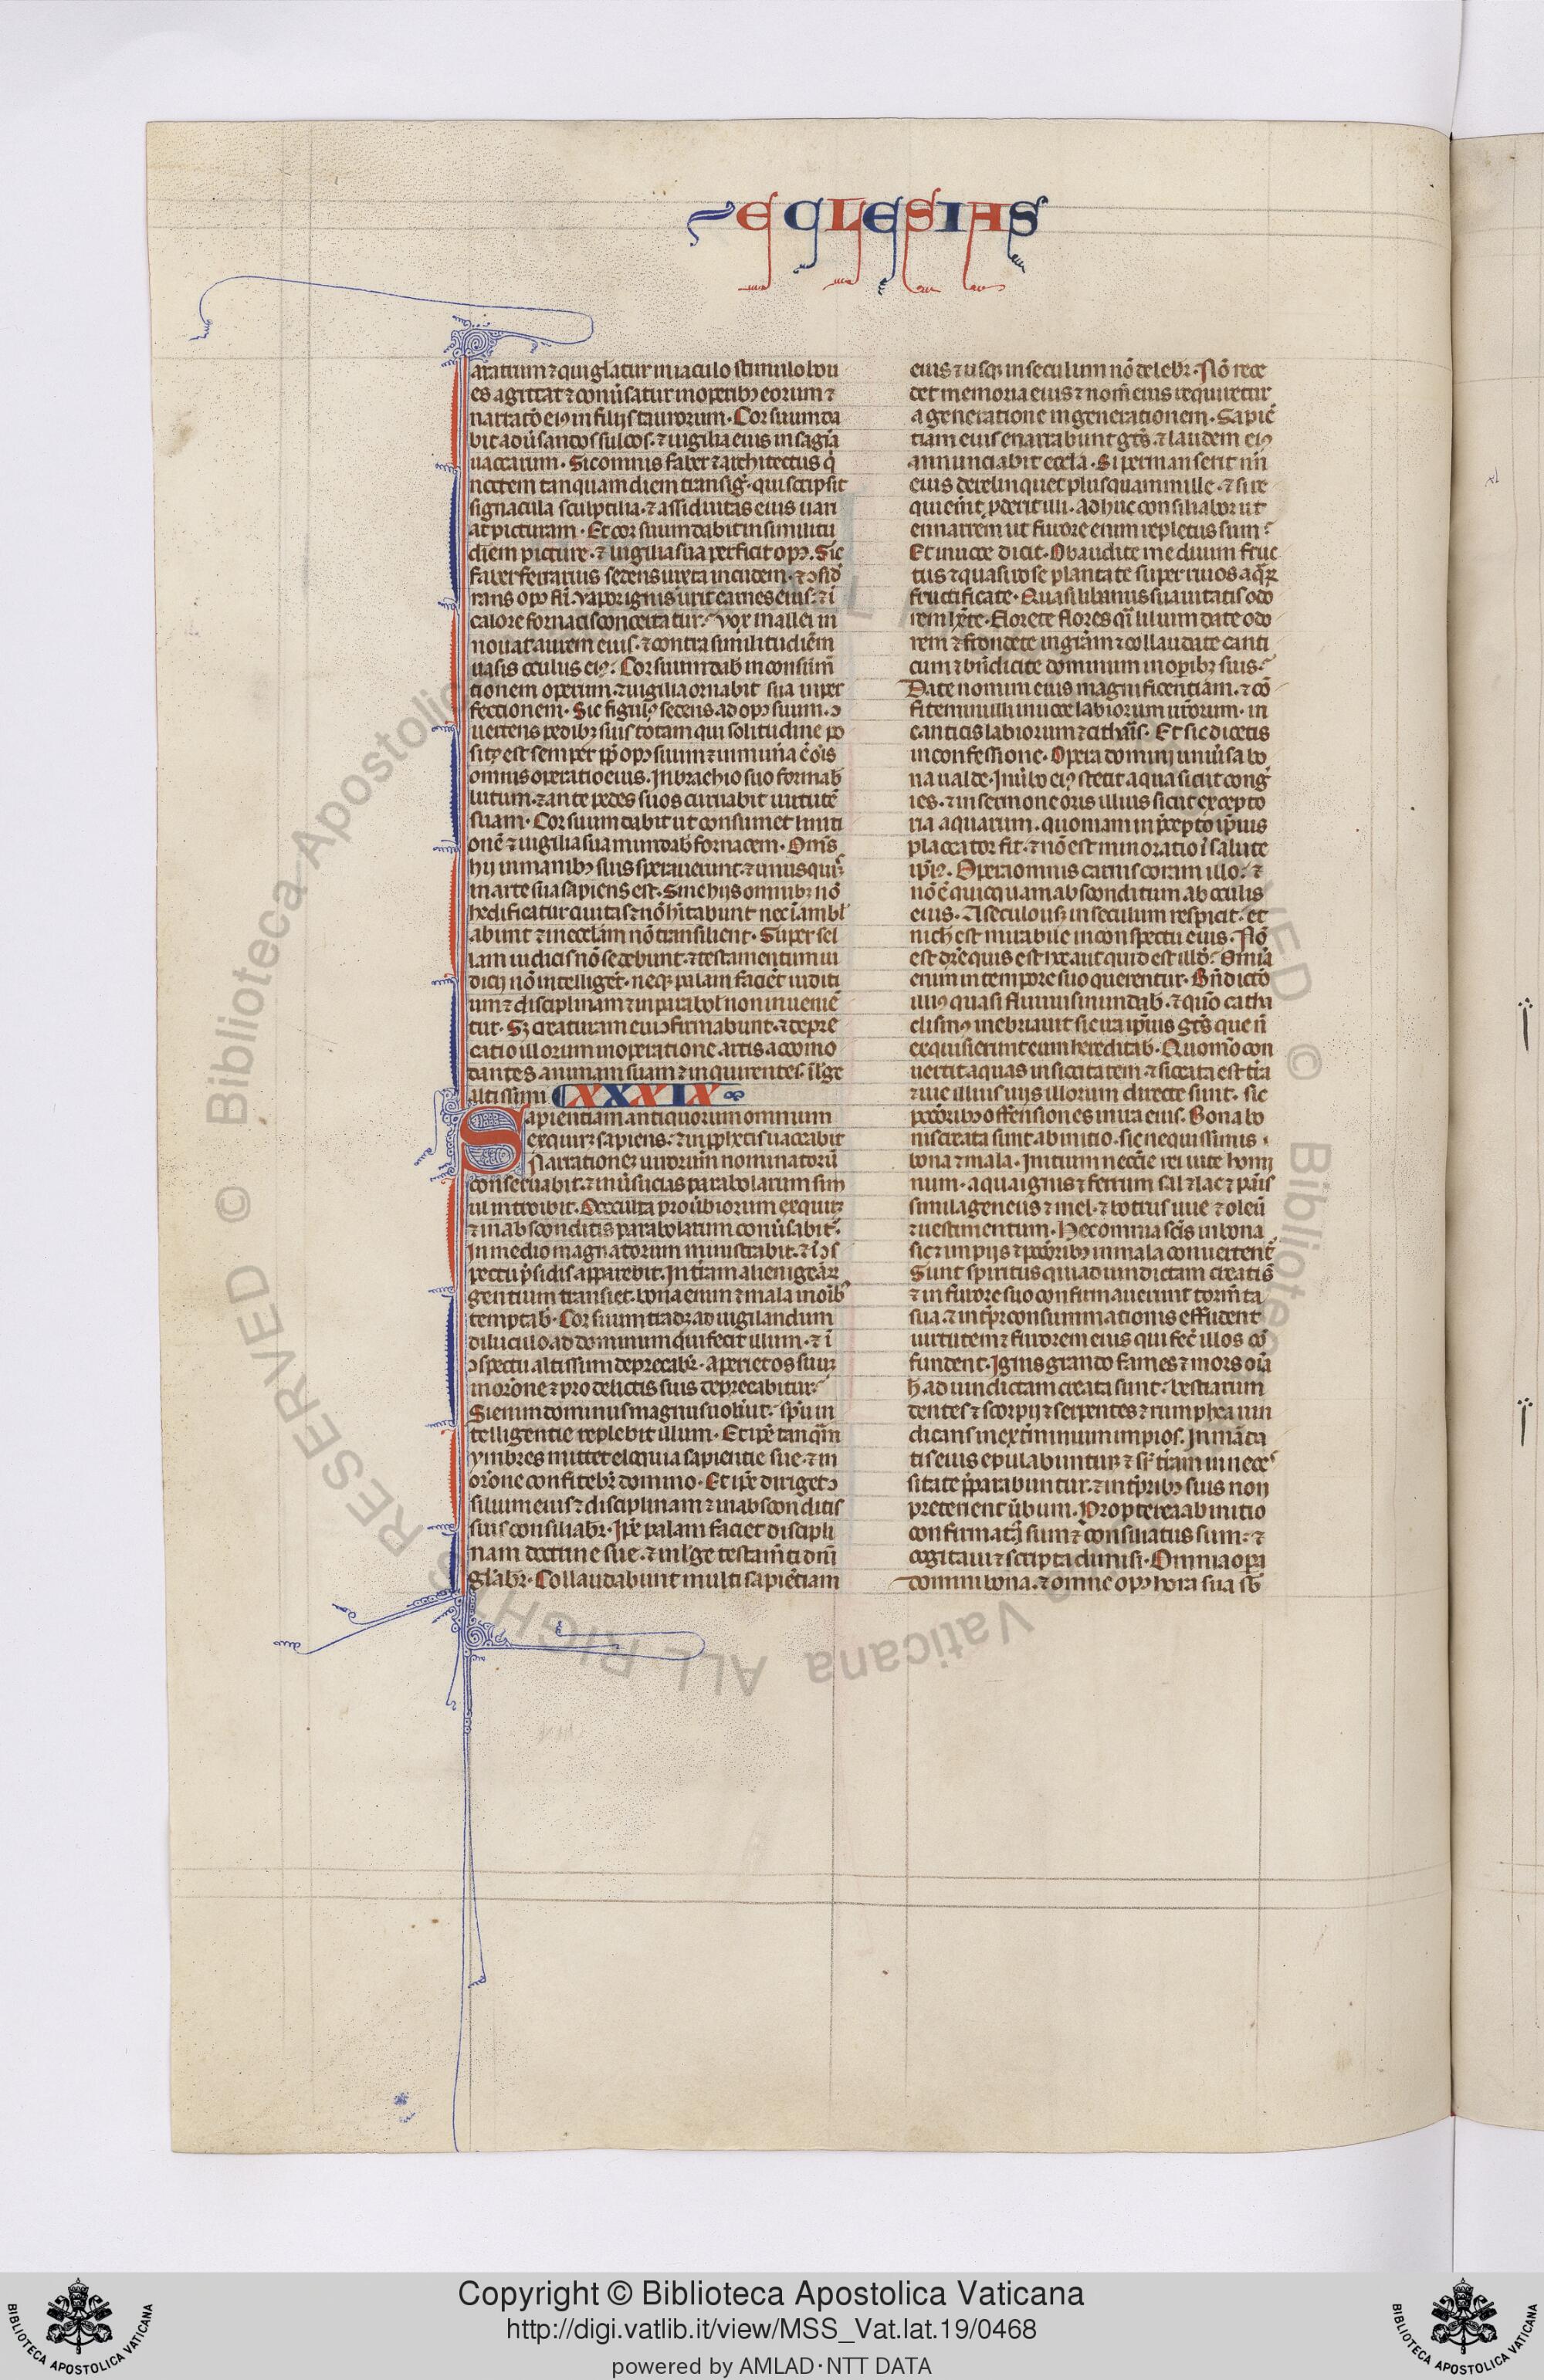 ECCLESIAS
aratrum ⁊ qui gl̄atur in iaculo stimulo bou
es agitat ⁊ conu̾satur in operib; eorum ⁊
narratō eiꝰ in filijs taurorum · Cor suum da
bit ad u̾sandos sulcos · ⁊ uigilia eius in sagīa
uaccarum · Sic omnis faber ⁊ architectus q̇
noctem tanquam diem transig̾ · qui sculpsit
signacula sculptilia · ⁊ assiduitas eius uari
at picturam · Et cor suum dabit in similitu
diem picture · ⁊ uigilia sua perficit opꝰ · Sic
faber ferrarius sedens iuxta incudem · ⁊ ↄsid̾
rans opꝰ fr̄i · vapor ignis urit carnes eius · ⁊ ī
calore fornacis concertatur · vox mallei in
nouat aurem eius · ⁊ contra similitudiem̄
uasis oculus eiꝰ · Cor suum dab̄ in consūm̄
tionem operum · ⁊ uigilia ornabit sua inper
fectionem · Sic figulꝰ sedens ad opꝰ suum · ↄ
uertens pedib; suis rotam qui solitudine po
sitꝰ est semper pp̄ opꝰ suum ⁊ in mun̄a ē ōis
omnis operatio eius · In brachio suo formab̄
lutum · ⁊ ante pedes suos curuabit uirtutē
suam · Cor suum dabit ut consumet liniti
onē ⁊ uigilia sua mundab̄ fornacem · Om̄s
hij in manib; suis sperauerunt · ⁊ unusquisꝗ
in arte sua sapiens est · Sine hijs omnib; nō
hedificatur ciuitas ⁊ nō hītabunt nec īambl̄
abunt ⁊ in eccl̄am nō transilient · Super sel
lam iudicis nō sedebunt · ⁊ testamentum iu
dicij nō intelliget̄ · neq; palam faciēt iuditi
um ⁊ disciplinam ⁊ in parabol̄ non inuenie̅
tur · S; creaturam eui ↄfirmabunt · ⁊ depre
catio illorum in operatione artis accomo
dantes animam suam ⁊ inquirentes · ī lege
altissimi CXXXIX
Sapientiam antiquorum omnium
exquirꝫ sapiens · ⁊ in ꝓphetis uaccabit
Narrationeꝫ uirorum nominatorū
conseruabit · ⁊ inu̾sucias parabolarum sim
ul introibit · Occulta prou̾biorum exquirꝫ
⁊ in absconditis parabolarum conu̾sabitꝛ
In medio magnatorum ministrabit · ⁊ ī ↄs
pectu p̾sidis apparebit · In tram alienigeāꝝ
gentium transiet · bona enim ⁊ mala in oīb;
temptab̄ · Cor suum tradꝫ ad uigilandum
diluculo · ad dominum qui fecit illum · ⁊ ī
ↄspectu altissimi deprecabr̄ · aperiet os suuꝫ
in orōne ⁊ pro delictis suis deprecabitur
Si enim dominus magnus uolu̾it · spū in
telligentie replebit illum · Et ipē tanq̄m
ymbres mittet eloquia sapientie sue · ⁊ in
orōne confitebr̄ domino · Et ipē diriget ↄ
silium eius ⁊ disciplinam ⁊ in absconditis
suis consiliabr̄ · Ipē palam faciet discipli
nam doctrine sue · ⁊ in lege testam̄ti dn̄i
gl̄abr̄ · Collaudabunt multi sapiētiam
eius ⁊ usq; in seculum nō delebr̄ · Nō rece
det memoria eius ⁊ nom̄ eius requiretur
a generatione in generationem · Sapiē
tiam eius enarrabunt gēs · ⁊ laudem eiꝰ
annunciabit eccl̄a · Si permanserit n̄n
eius derelinquet plusquam mille · ⁊ si re
quieuit̄ · ꝓderit illi · Adhuc consiliabor ut
ennarrem ut furore enim repletus sum ·
Et in uoce dicit · Obaudite me diuini fruc
tus ⁊ quasi rose plantate super riuos aq̄ꝝ
fructificate · Quasi libanus suauitatis odo
rem hēte · Florete flores qī lilium date odo
rem ⁊ frondete in grām ⁊ collaudate canti
cum ⁊ bn̄dicite dominum in operib; suis ·
Date nomini eius magnificentiam · ⁊ cō
fitemini illi in uoce labiorum ur̄orum · in
canticis labiorum ⁊ citharis · Et sic dicetis
in confessione · Opera domini uniu̾sa bo
na ualde · In u̾bo eiꝰ stetit aqua sicut cong̾
ies · ⁊ in sermone oris illius sicut excepto
ria aquarum · quoniam in p̾cepto ip̄ius
placator fit · ⁊ nō est minoratio ī salute
ip̄iꝰ · Opera omnis carnis coram illo · ⁊
nō ē quicquam absconditum ab oculis
eius · A seculo usꝗ in seculum respicit · et
nich̄ est mirabile in conspectu eius · Nō
est dr̄e quis est h̄ · aut quid est illd̄ · Omīa
enim in tempore suo querentur · Bn̄dictō
illiꝰ quasi fluuius inundab̄ · ⁊ quō catha
clismꝰ inebriauit sic ira ip̄ius gēs que n̄
exquisierunt eum hereditab̄ · Quom̄o con
uertit aquas in siccitatem ⁊ siccata est tr̄a
⁊ uie illius uijs illorum directe sunt · sic
pctōrib; offensiones in ira eius · Bona bo
nis creata sunt ab initio · sic nequissimis ·
bona ⁊ mala · Initium neccīe rei uite homi
num · aqua ignis ⁊ ferrum sal ⁊ lac ⁊ panis
similageneus ⁊ mel · ⁊ botrus uue ⁊ oleū
⁊ uestimentum · Hec omnia scīs in bona
sic ⁊ impijs ⁊ pctōrib; in mala conuertent̄
Sunt spiritus qui ad uindictam creati s̄
⁊ in furore suo confirmauerunt torm̄ta
sua · ⁊ in tp̄r consummationis effudent
uirtutem ⁊ furorem eius qui fec̄ illos cō
fundent · Ignis grando fames ⁊ mors oīa
h̄ · ad uindictam creata sunt · bestiarum
dentes ⁊ scorpij ⁊ serpentes ⁊ rumphea uin
dicans in extīminium impios · In māda
tis eius epulabuntur ⁊ sr̄ tram in nece
sitate p̄parabuntur · ⁊ in tp̄rib; suis non
preterient u̾bum · Propterea ab initio
confirmatꝰ sum ⁊ consiliatus sum · ⁊
cogitaui ⁊ scripta dimisi · Omnia opera
domini bona · ⁊ omne opꝰ hora sua sb̄
© Biblioteca Apostolica Vaticana ALL RIGHTS RESERVED
Copyright © Biblioteca Apostolica Vaticana
http://digi.vatlib.it/view/MSS_Vat.lat.19/0468
powered by AMLAD·NTT DATA
BIBLIOTECA APOSTOLICA VATICANA
BIBLIOTECA APOSTOLICA VATICANA